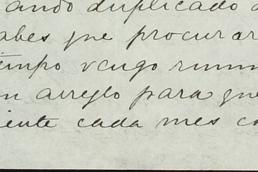 ando duplicado a
abes que procurar
iempo vengo
n arreglo para que
iente cada mes co